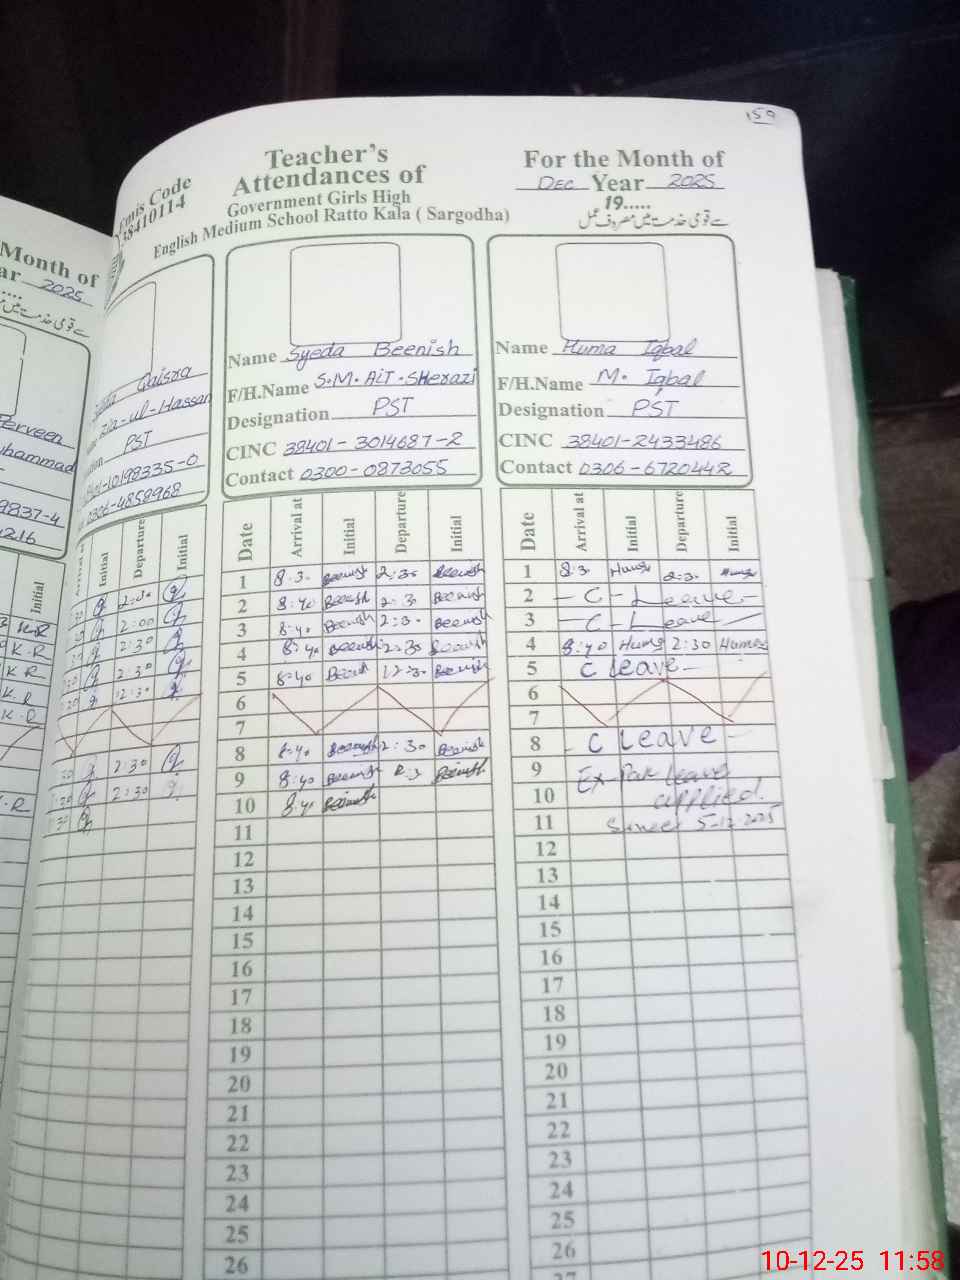 159
Teacher's
Attendances of
Government Girls High
English Medium School Ratto Kala ( Sargodha)
Emis Code
38410114
For the Month of
Dec Year 2025
19.....
سے قومی خدمت میں مصروف عمل
Month of
2025
Perveen
Muhammad
9837-4
Initial
K.R
K.R
K R
K.R
Qaisra
Zia-ul-Hassan
PST
38401-10198335-0
0306-4858968
Initial Departure Initial
2:00
2:30
2:30
12:30
2:30
2:30
Name Syeda Beenish
F/H.Name S.M. Ait. SHerazi
Designation PST
CINC 38401-3014687-2
Contact 0300-0873055
Date Arrival at Initial Departure Initial
1 8.3. Beenish 2:30 Beenish
2 8:40 Beenish 2:3. Beenish
3 8:40 Beenish 2:3. Beenish
4 8:40 Beenish 2:30 Beenish
5 8:40 Beenish 12:30 Beenish
6
7
8 8:40 Beenish 2:30 Beenish
9 8:40 Beenish Beenish
10 8:40 Beenish
11
12
13
14
15
16
17
18
19
20
21
22
23
24
25
26
Name Huma Iqbal
F/H.Name M. Iqbal
Designation PST
CINC 38401-2433486
Contact 0306-6720442
Date Arrival at Initial Departure Initial
1 8:3. Huma 2:3. Huma
2 - C - Leave -
3 - C - Leave -
4 8:40 Huma 2:30 Huma
5 C leave -
6
7
8 - C leave -
9 Ex-Pak leave
10 applied.
11 5-12-2025
12
13
14
15
16
17
18
19
20
21
22
23
24
25
26
27
10-12-25 11:58